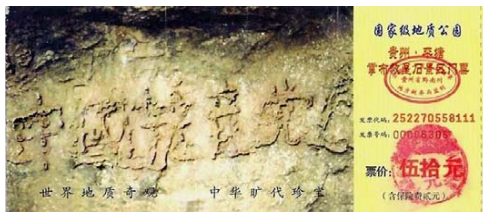 中國共产党
世界地质奇观 中华旷代珍宝
国家级地质公园
贵州·平塘
掌布藏字石景区门票
发票代码：252270558111
发票号码：
票价：伍拾元
（含保险费贰元）